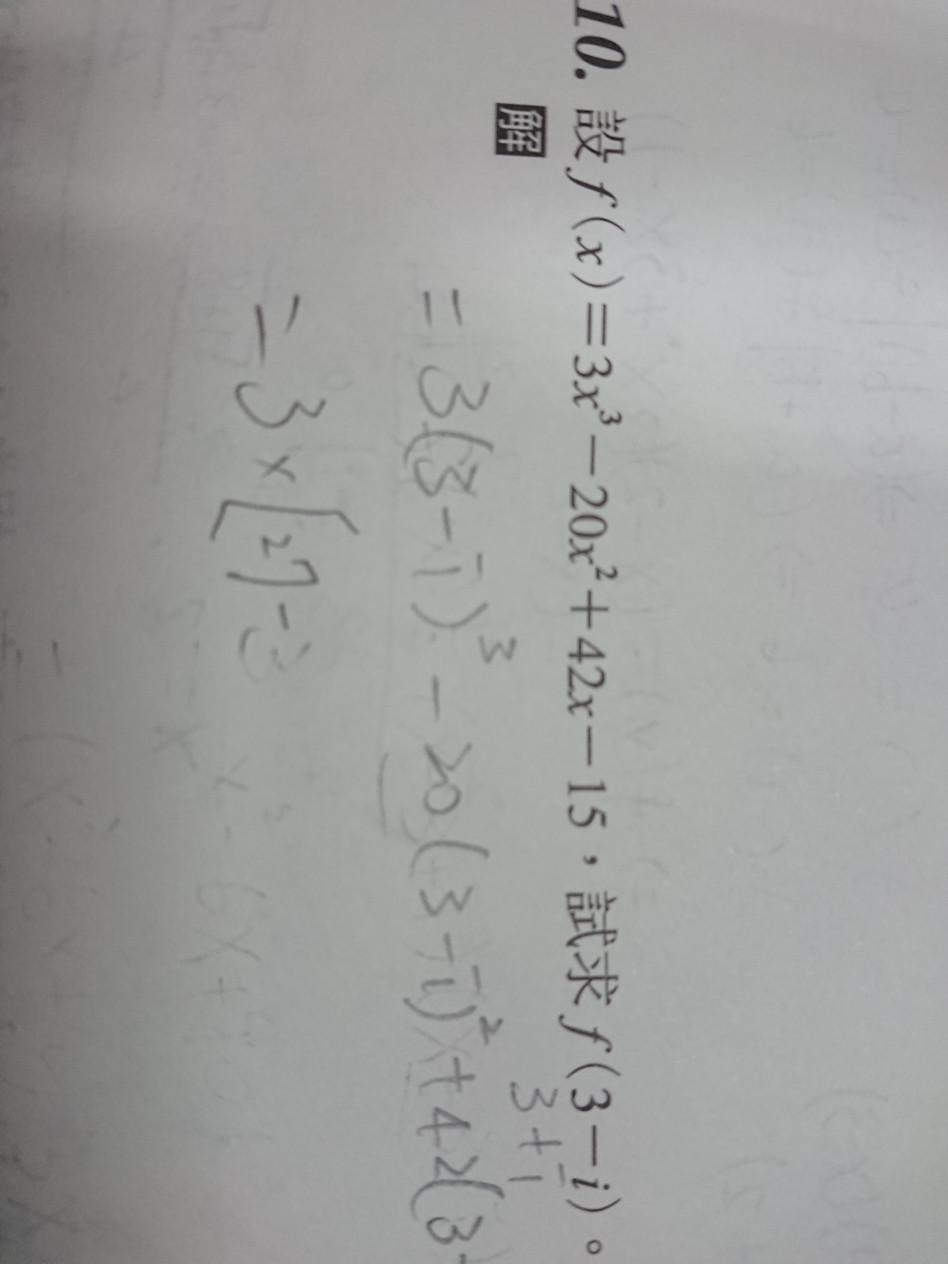 10. 設 f(x)=3x³−20x²+42x−15，試求 f(3−i)。
解
3+i
=3(3-i)³-20(3-i)²+42(3-
=3×[27-3